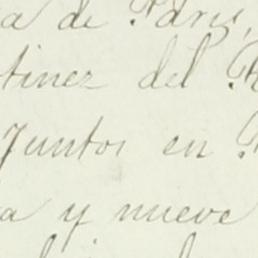 a de Paris,
tinez del
Juntos en
a y nueve